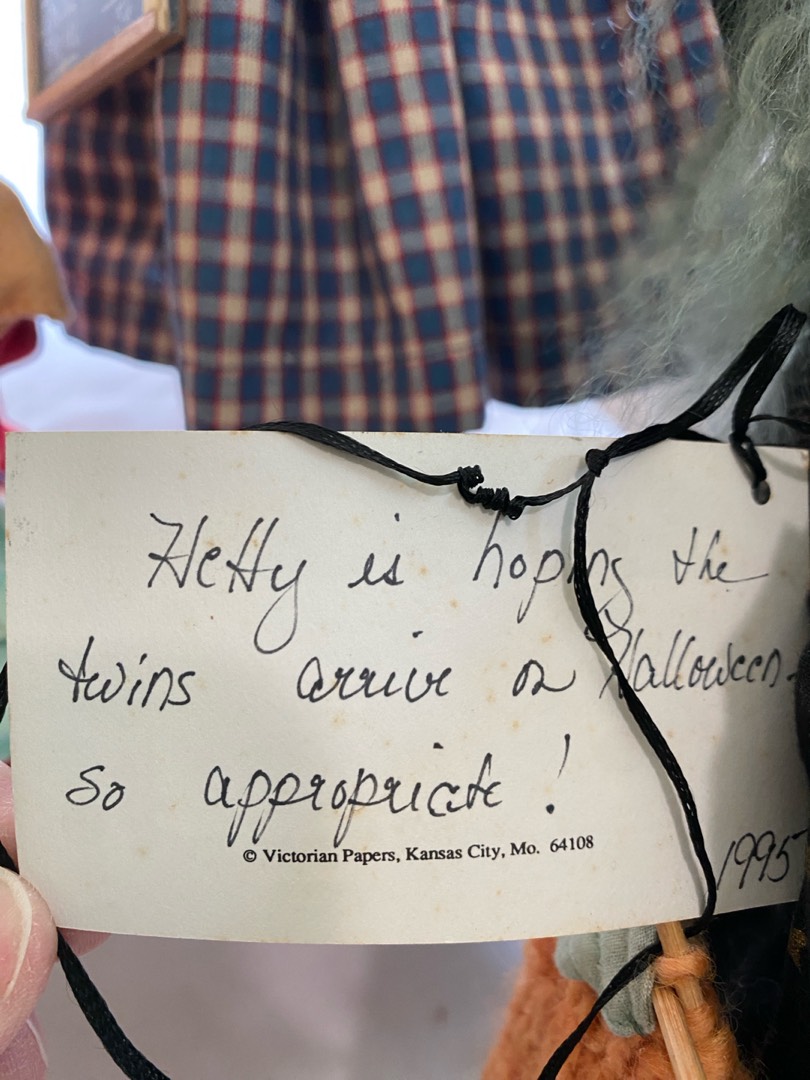 Hetty is hoping the
twins arrive on Halloween-
so appropriate!
© Victorian Papers, Kansas City, Mo. 64108
1995